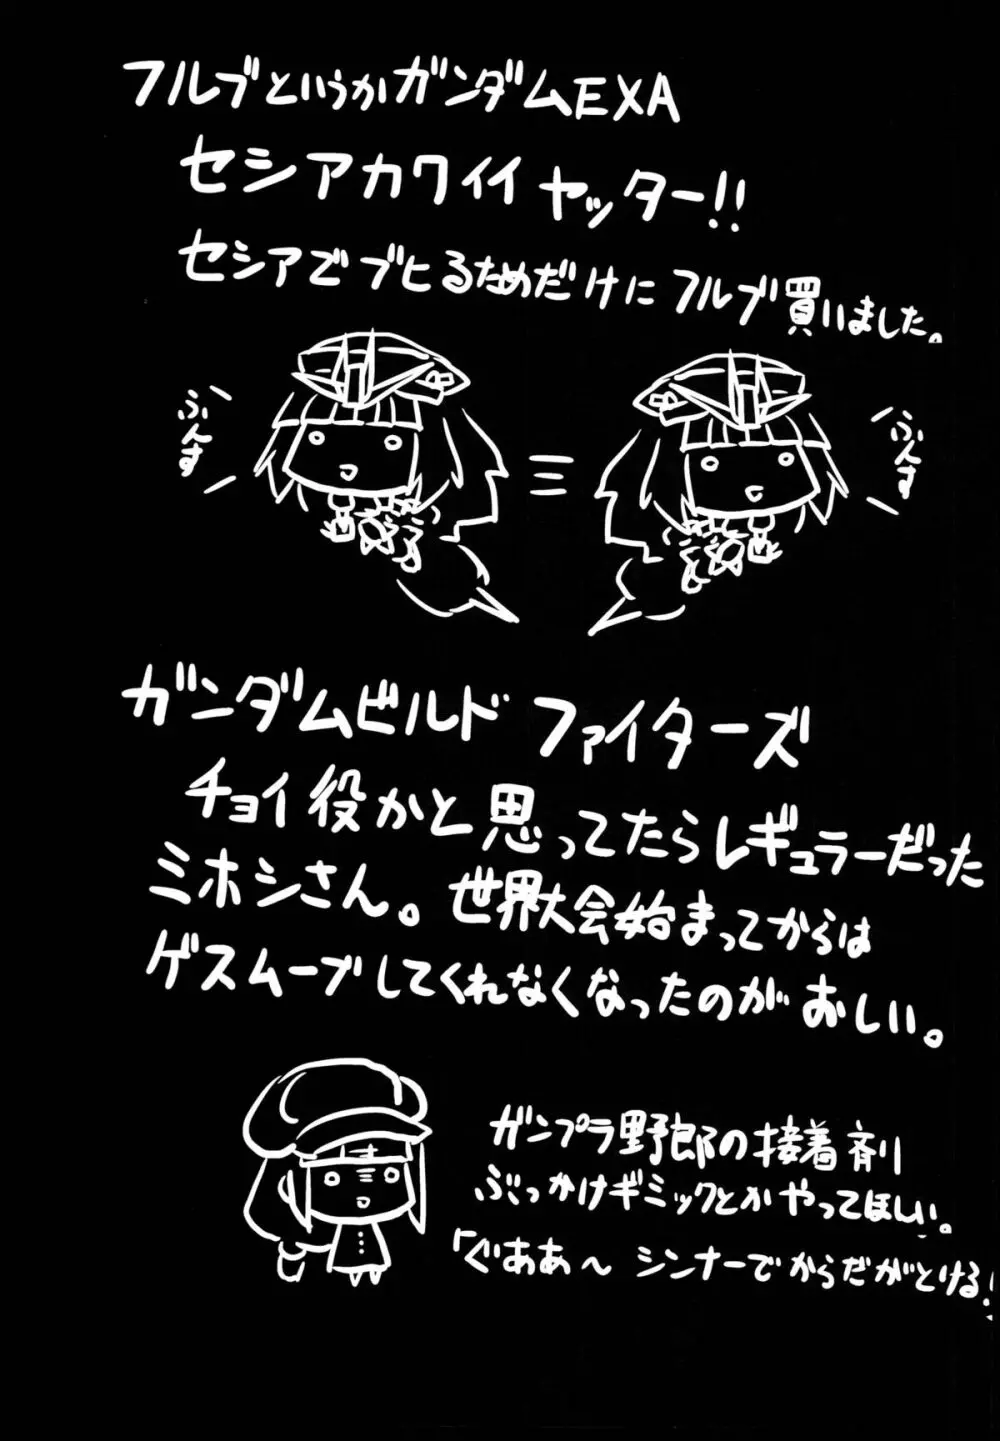 フルブというかガンダムEXA
セシアカワイイ ヤッター!!
セシアでブヒるためだけにフルブ買いました。
ふんす
ふんす
ガンダムビルドファイターズ
チョイ役かと思ってたらレギュラーだった
ミホシさん。世界大会始まってからは
ゲスムーブしてくれなくなったのがおしい。
ガンプラ野郎の接着剤
ぶっかけギミックとかやってほしい。
「ぐああ～シンナーでからだがとける!」